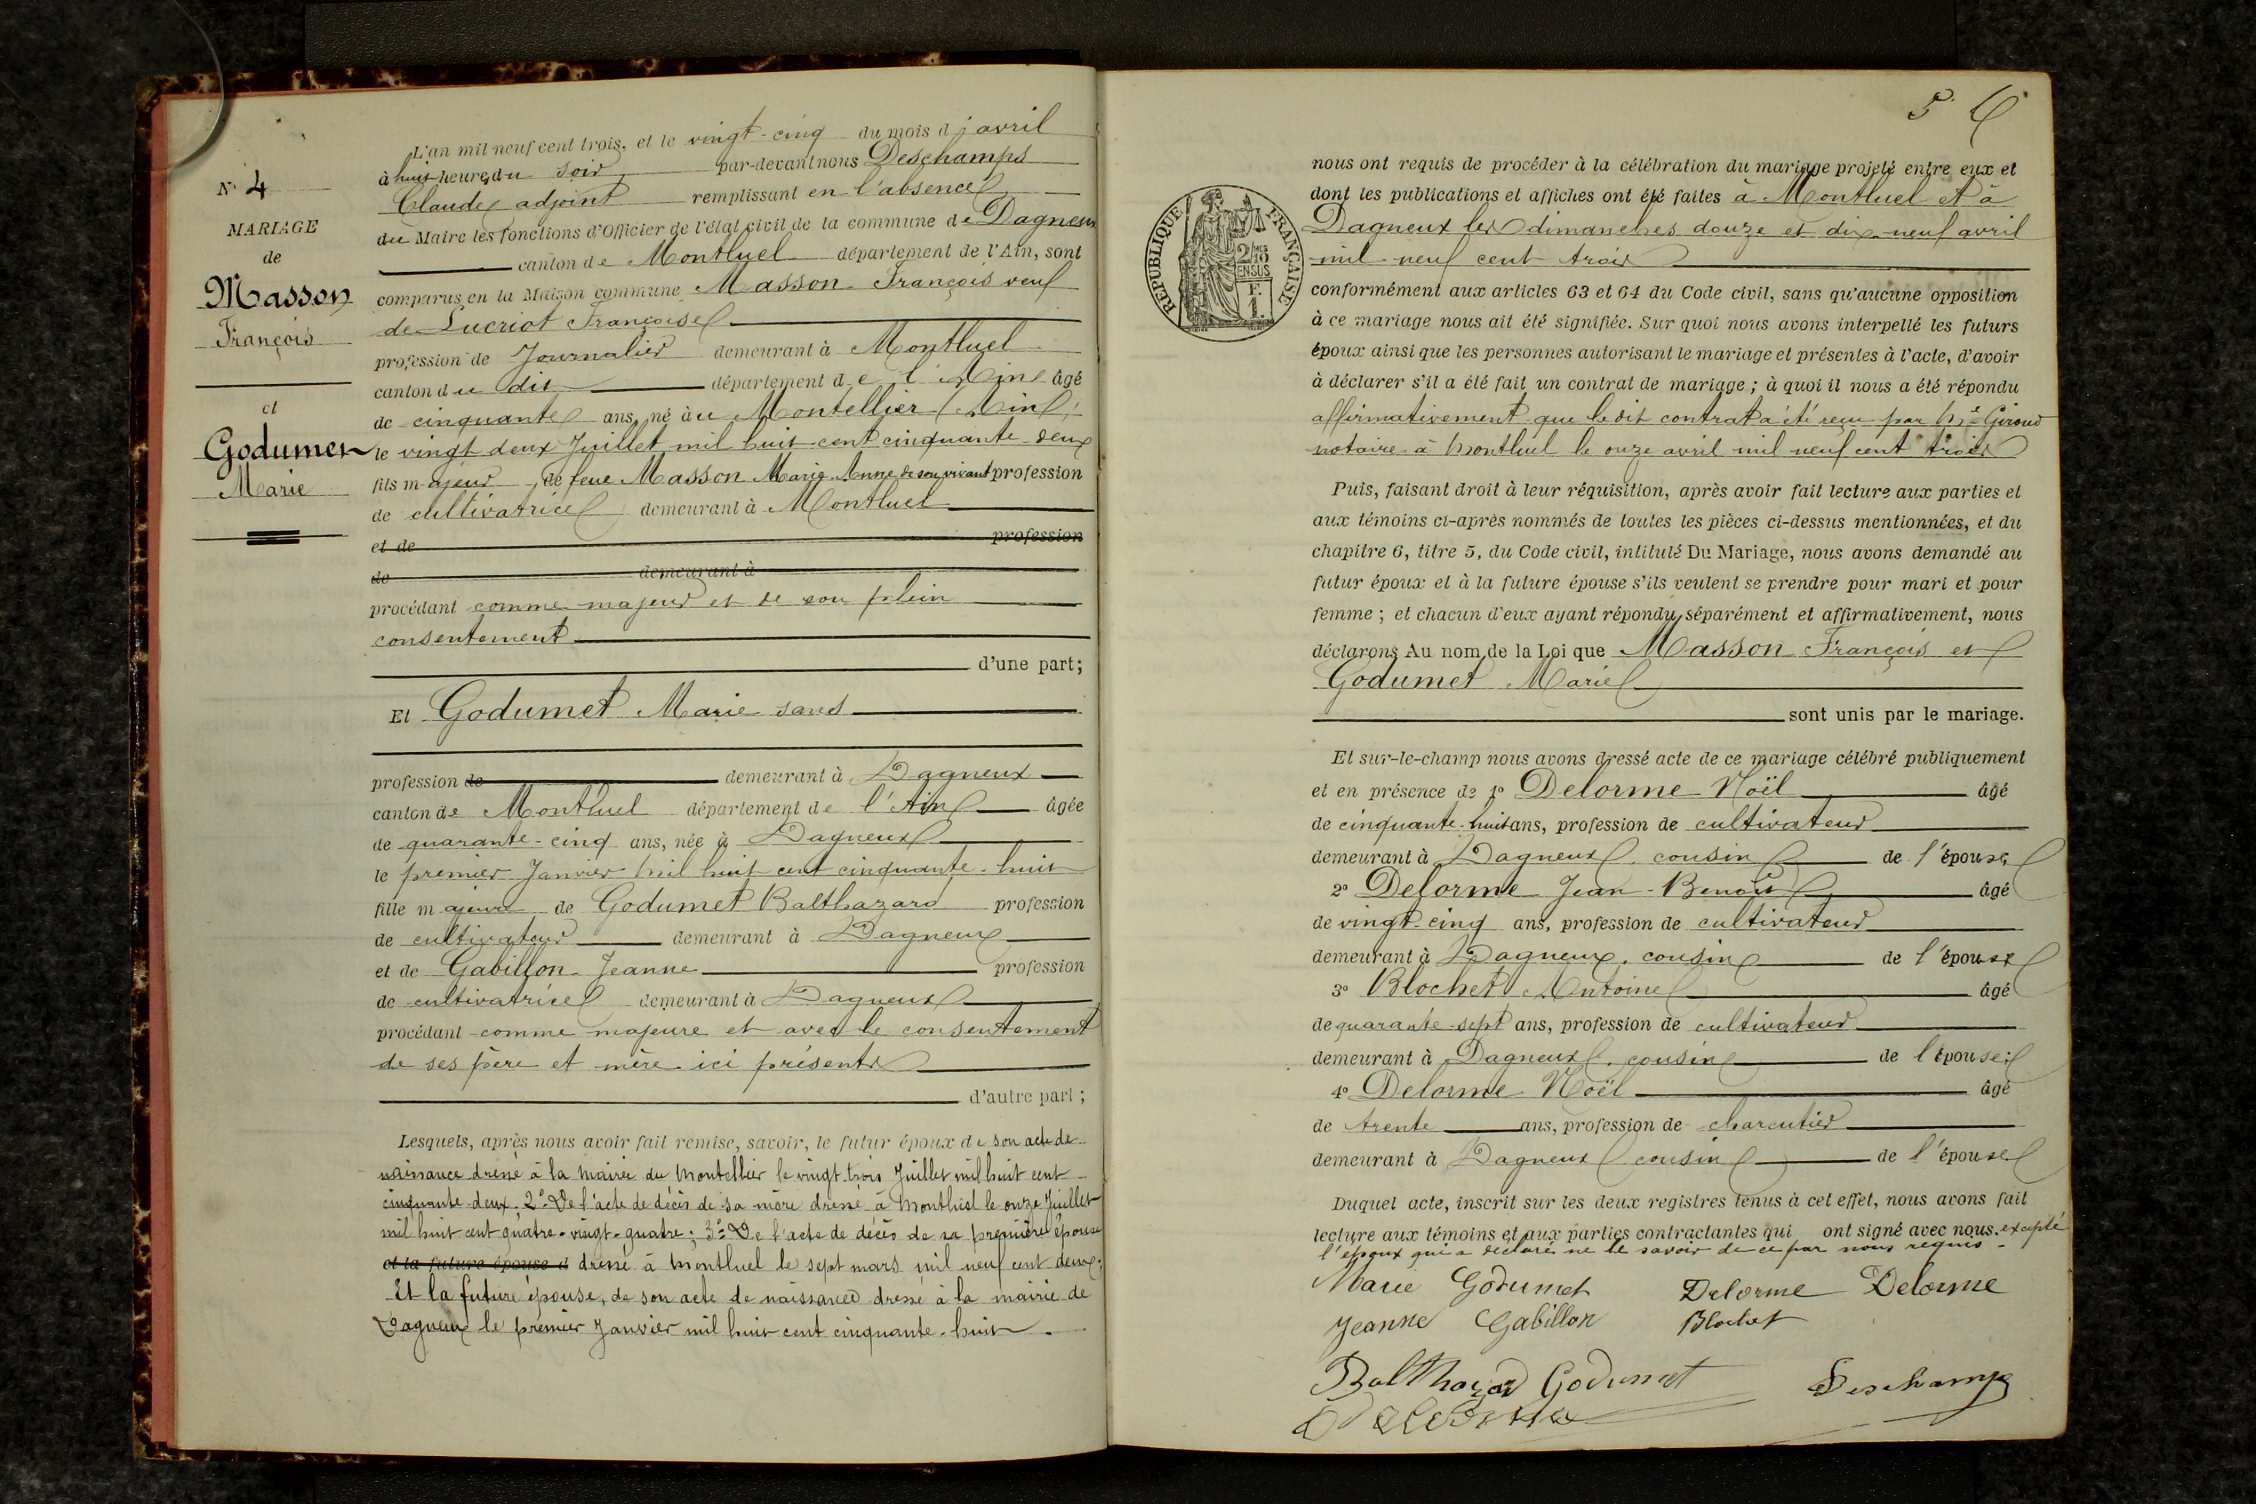 N° 4
MARIAGE
de
Masson
François
et
Godumer
Marie
L'an mil neuf cent trois, et le vingt-cinq du mois d'avril
à huit heures du soir par-devant nous Deschamps
Claude adjoint remplissant en l'absence
du Maire les fonctions d'Officier de l'état civil de la commune de Dagneux
canton de Montluel département de l'Ain, sont
comparus en la Maison commune Masson François veuf
de Lucriot Françoise
profession de Journalier demeurant à Montluel
canton du dit département de l'Ain âgé
de cinquante ans, né au Montellier (Ain)
le vingt deux Juillet mil huit cent cinquante deux
fils majeur de feue Masson Marie Anne de son vivant profession
de cultivatrice demeurant à Montluel
et de profession
de demeurant à
procédant comme majeur et de son plein
consentement
d'une part;
Et Godumet Marie sans
profession de demeurant à Dagneux
canton de Montluel département de l'Ain âgée
de quarante-cinq ans, née à Dagneux
le premier Janvier mil huit cent cinquante-huit
fille majeure de Godumet Balthazard profession
de cultivateur demeurant à Dagneux
et de Gabillon Jeanne profession
de cultivatrice demeurant à Dagneux
procédant comme majeure et avec le consentement
de ses père et mère ici présents
d'autre part;
Lesquels, après nous avoir fait remise, savoir, le futur époux de son acte de
naissance dressé à la mairie du Montellier le vingt-trois Juillet mil huit cent
cinquante-deux. 2° De l'acte de décès de sa mère dressé à Montluel le onze Juillet
mil huit cent quatre-vingt-quatre; 3° De l'acte de décès de sa première épouse
et la future épouse d dressé à Montluel le sept mars mil neuf cent deux;
Et la future épouse, de son acte de naissance dressé à la mairie de
Dagneux le premier Janvier mil huit cent cinquante-huit.
5
RÉPUBLIQUE FRANÇAISE
2/10
EN SUS
F.
1.
nous ont requis de procéder à la célébration du mariage projeté entre eux et
dont les publications et affiches ont été faites à Montluel et à
Dagneux les dimanches douze et dix-neuf avril
mil-neuf cent trois
conformément aux articles 63 et 64 du Code civil, sans qu'aucune opposition
à ce mariage nous ait été signifiée. Sur quoi nous avons interpellé les futurs
époux ainsi que les personnes autorisant le mariage et présentes à l'acte, d'avoir
à déclarer s'il a été fait un contrat de mariage; à quoi il nous a été répondu
affirmativement que le dit contrat a été reçu par Me Giroud
notaire à Montluel le onze avril mil neuf cent trois
Puis, faisant droit à leur réquisition, après avoir fait lecture aux parties et
aux témoins ci-après nommés de toutes les pièces ci-dessus mentionnées, et du
chapitre 6, titre 5, du Code civil, intitulé Du Mariage, nous avons demandé au
futur époux et à la future épouse s'ils veulent se prendre pour mari et pour
femme; et chacun d'eux ayant répondu séparément et affirmativement, nous
déclarons Au nom de la Loi que Masson François et
Godumet Marie
sont unis par le mariage.
Et sur-le-champ nous avons dressé acte de ce mariage célébré publiquement
et en présence de 1° Delorme Noël âgé
de cinquante-huit ans, profession de cultivateur
demeurant à Dagneux cousin de l'épouse
2° Delorme Jean-Benoît âgé
de vingt-cinq ans, profession de cultivateur
demeurant à Dagneux. cousin de l'épouse
3° Blochet Antoine âgé
de quarante-sept ans, profession de cultivateur
demeurant à Dagneux. cousin de l'épouse;
4° Delorme Noël âgé
de trente ans, profession de charcutier
demeurant à Dagneux cousin de l'épouse
Duquel acte, inscrit sur les deux registres tenus à cet effet, nous avons fait
lecture aux témoins et aux parties contractantes qui ont signé avec nous. excepté
l'époux qui a déclaré ne le savoir de ce par nous requis.
Marie Godumet Delorme Delorme
Jeanne Gabillon Blochet
Balthazard Godumet Deschamps
Delorme